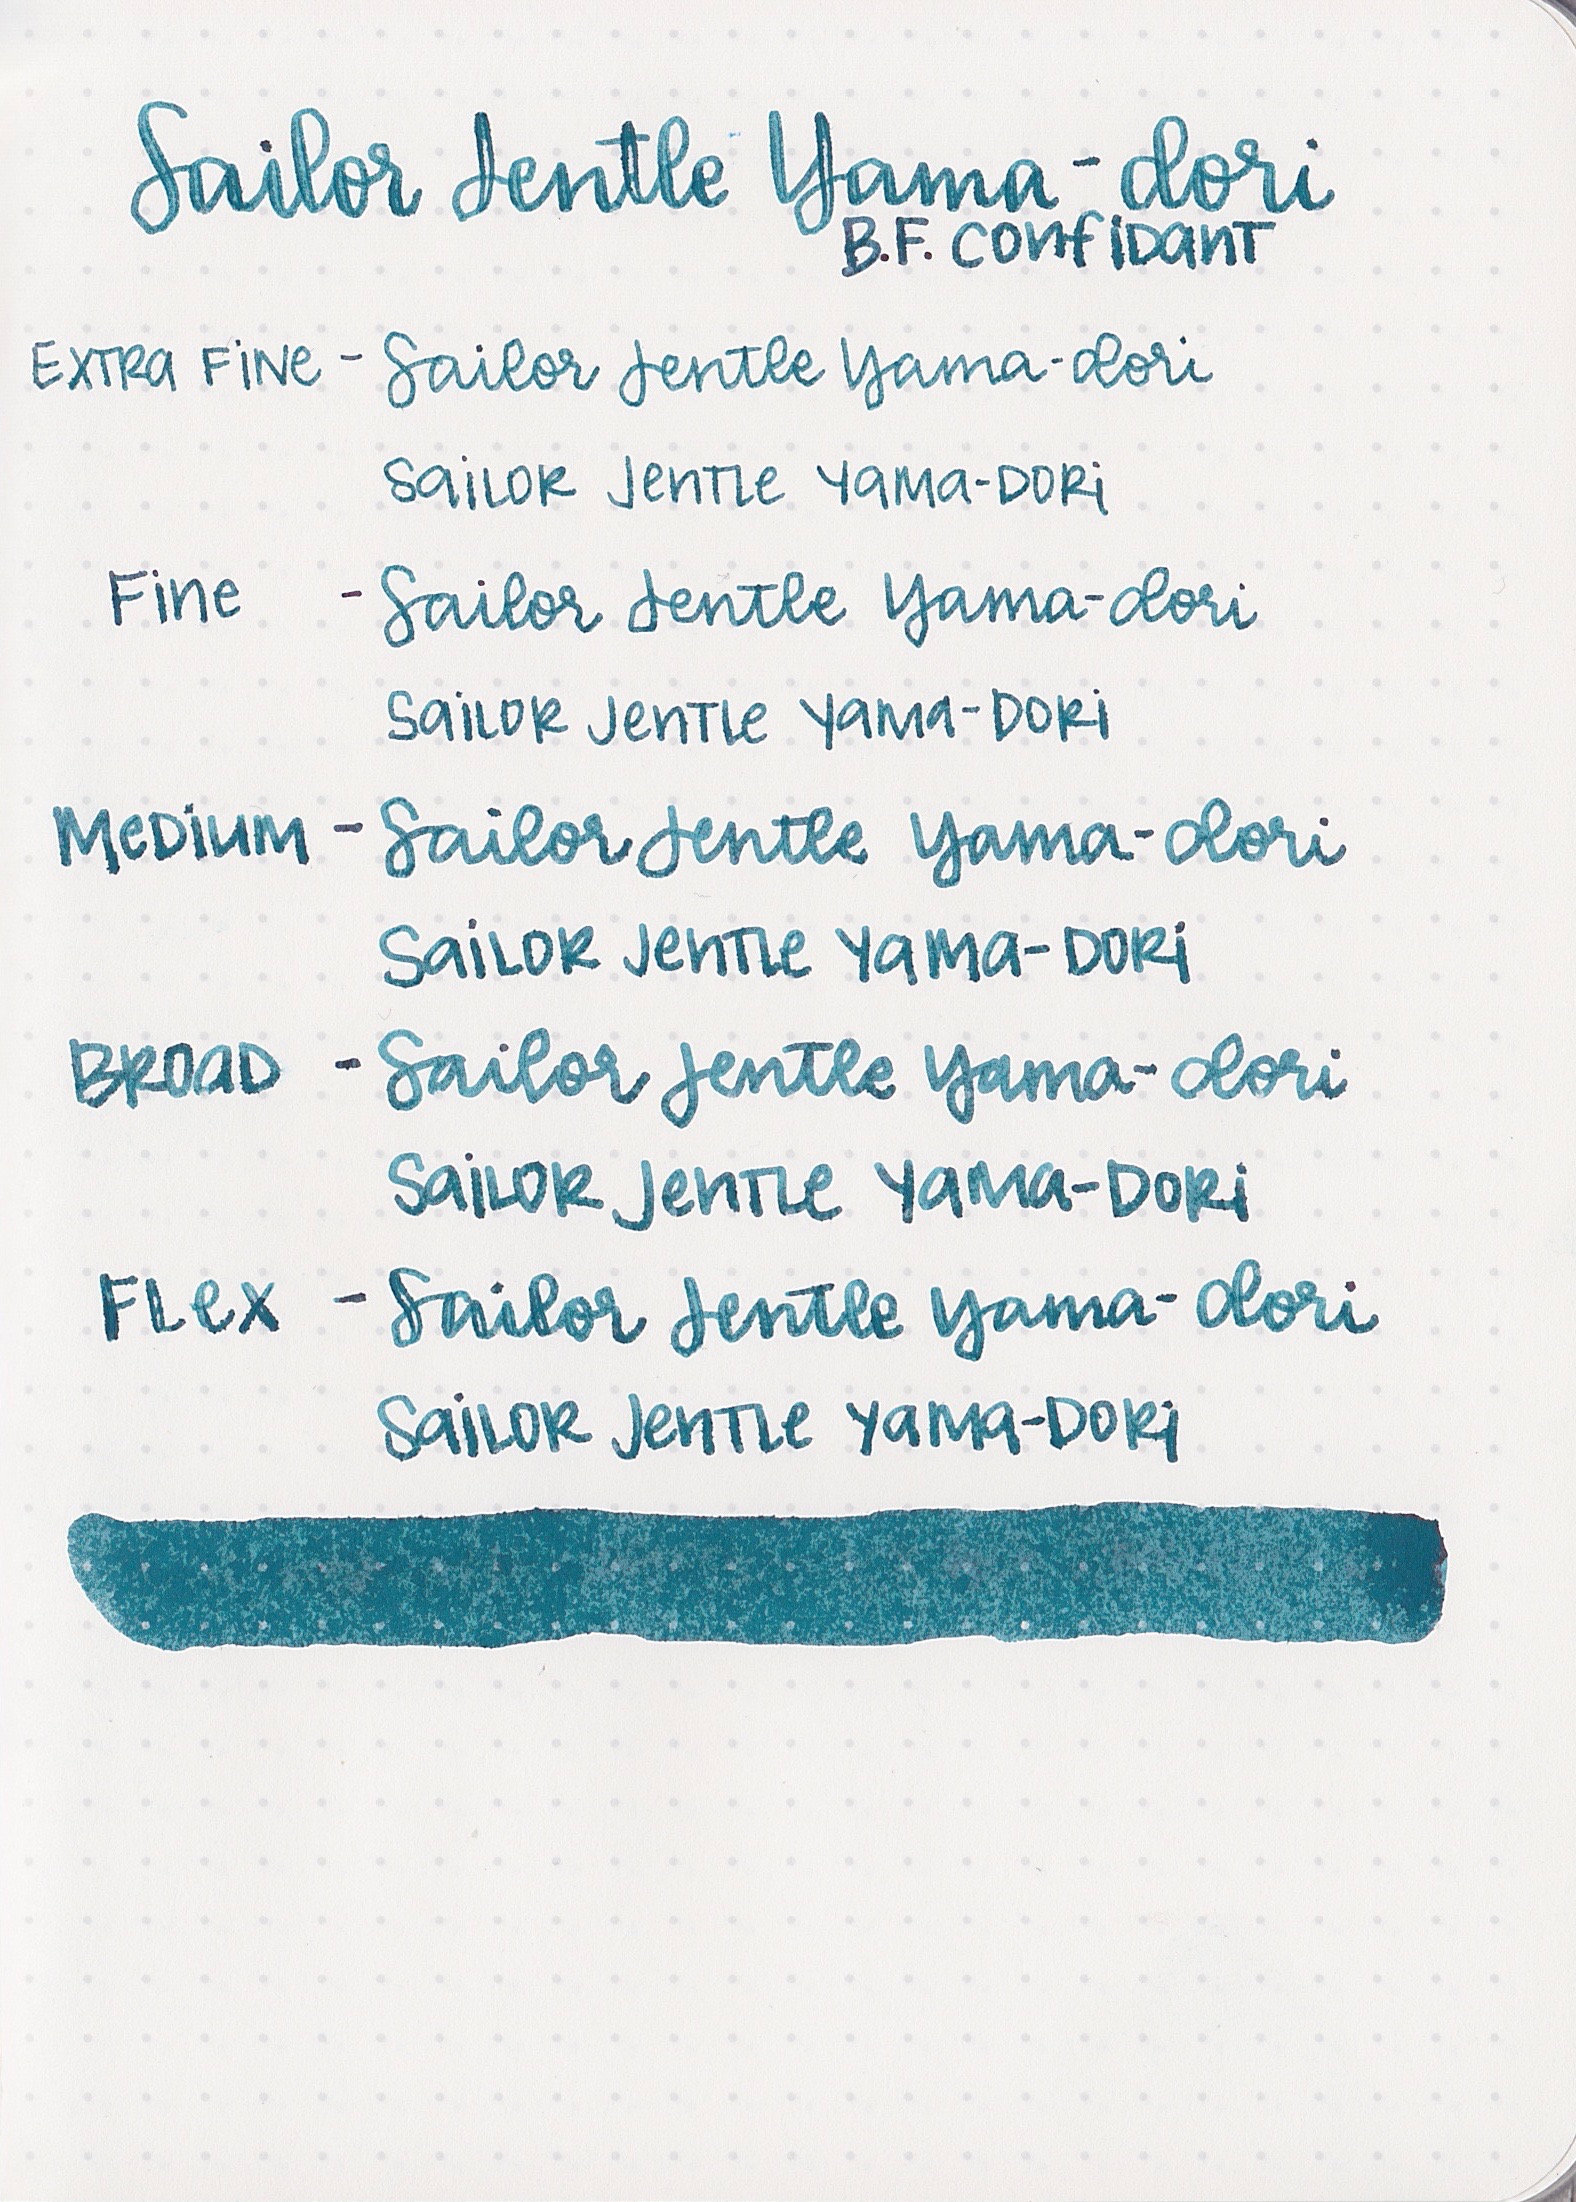 Sailor Jentle Yama-dori
B.F. Confidant
Extra Fine - Sailor Jentle Yama-dori
Sailor Jentle Yama-Dori
Fine - Sailor Jentle Yama-dori
Sailor Jentle Yama-Dori
Medium - Sailor Jentle Yama-dori
Sailor Jentle Yama-Dori
Broad - Sailor Jentle Yama-dori
Sailor Jentle Yama-Dori
Flex - Sailor Jentle Yama-dori
Sailor Jentle Yama-Dori